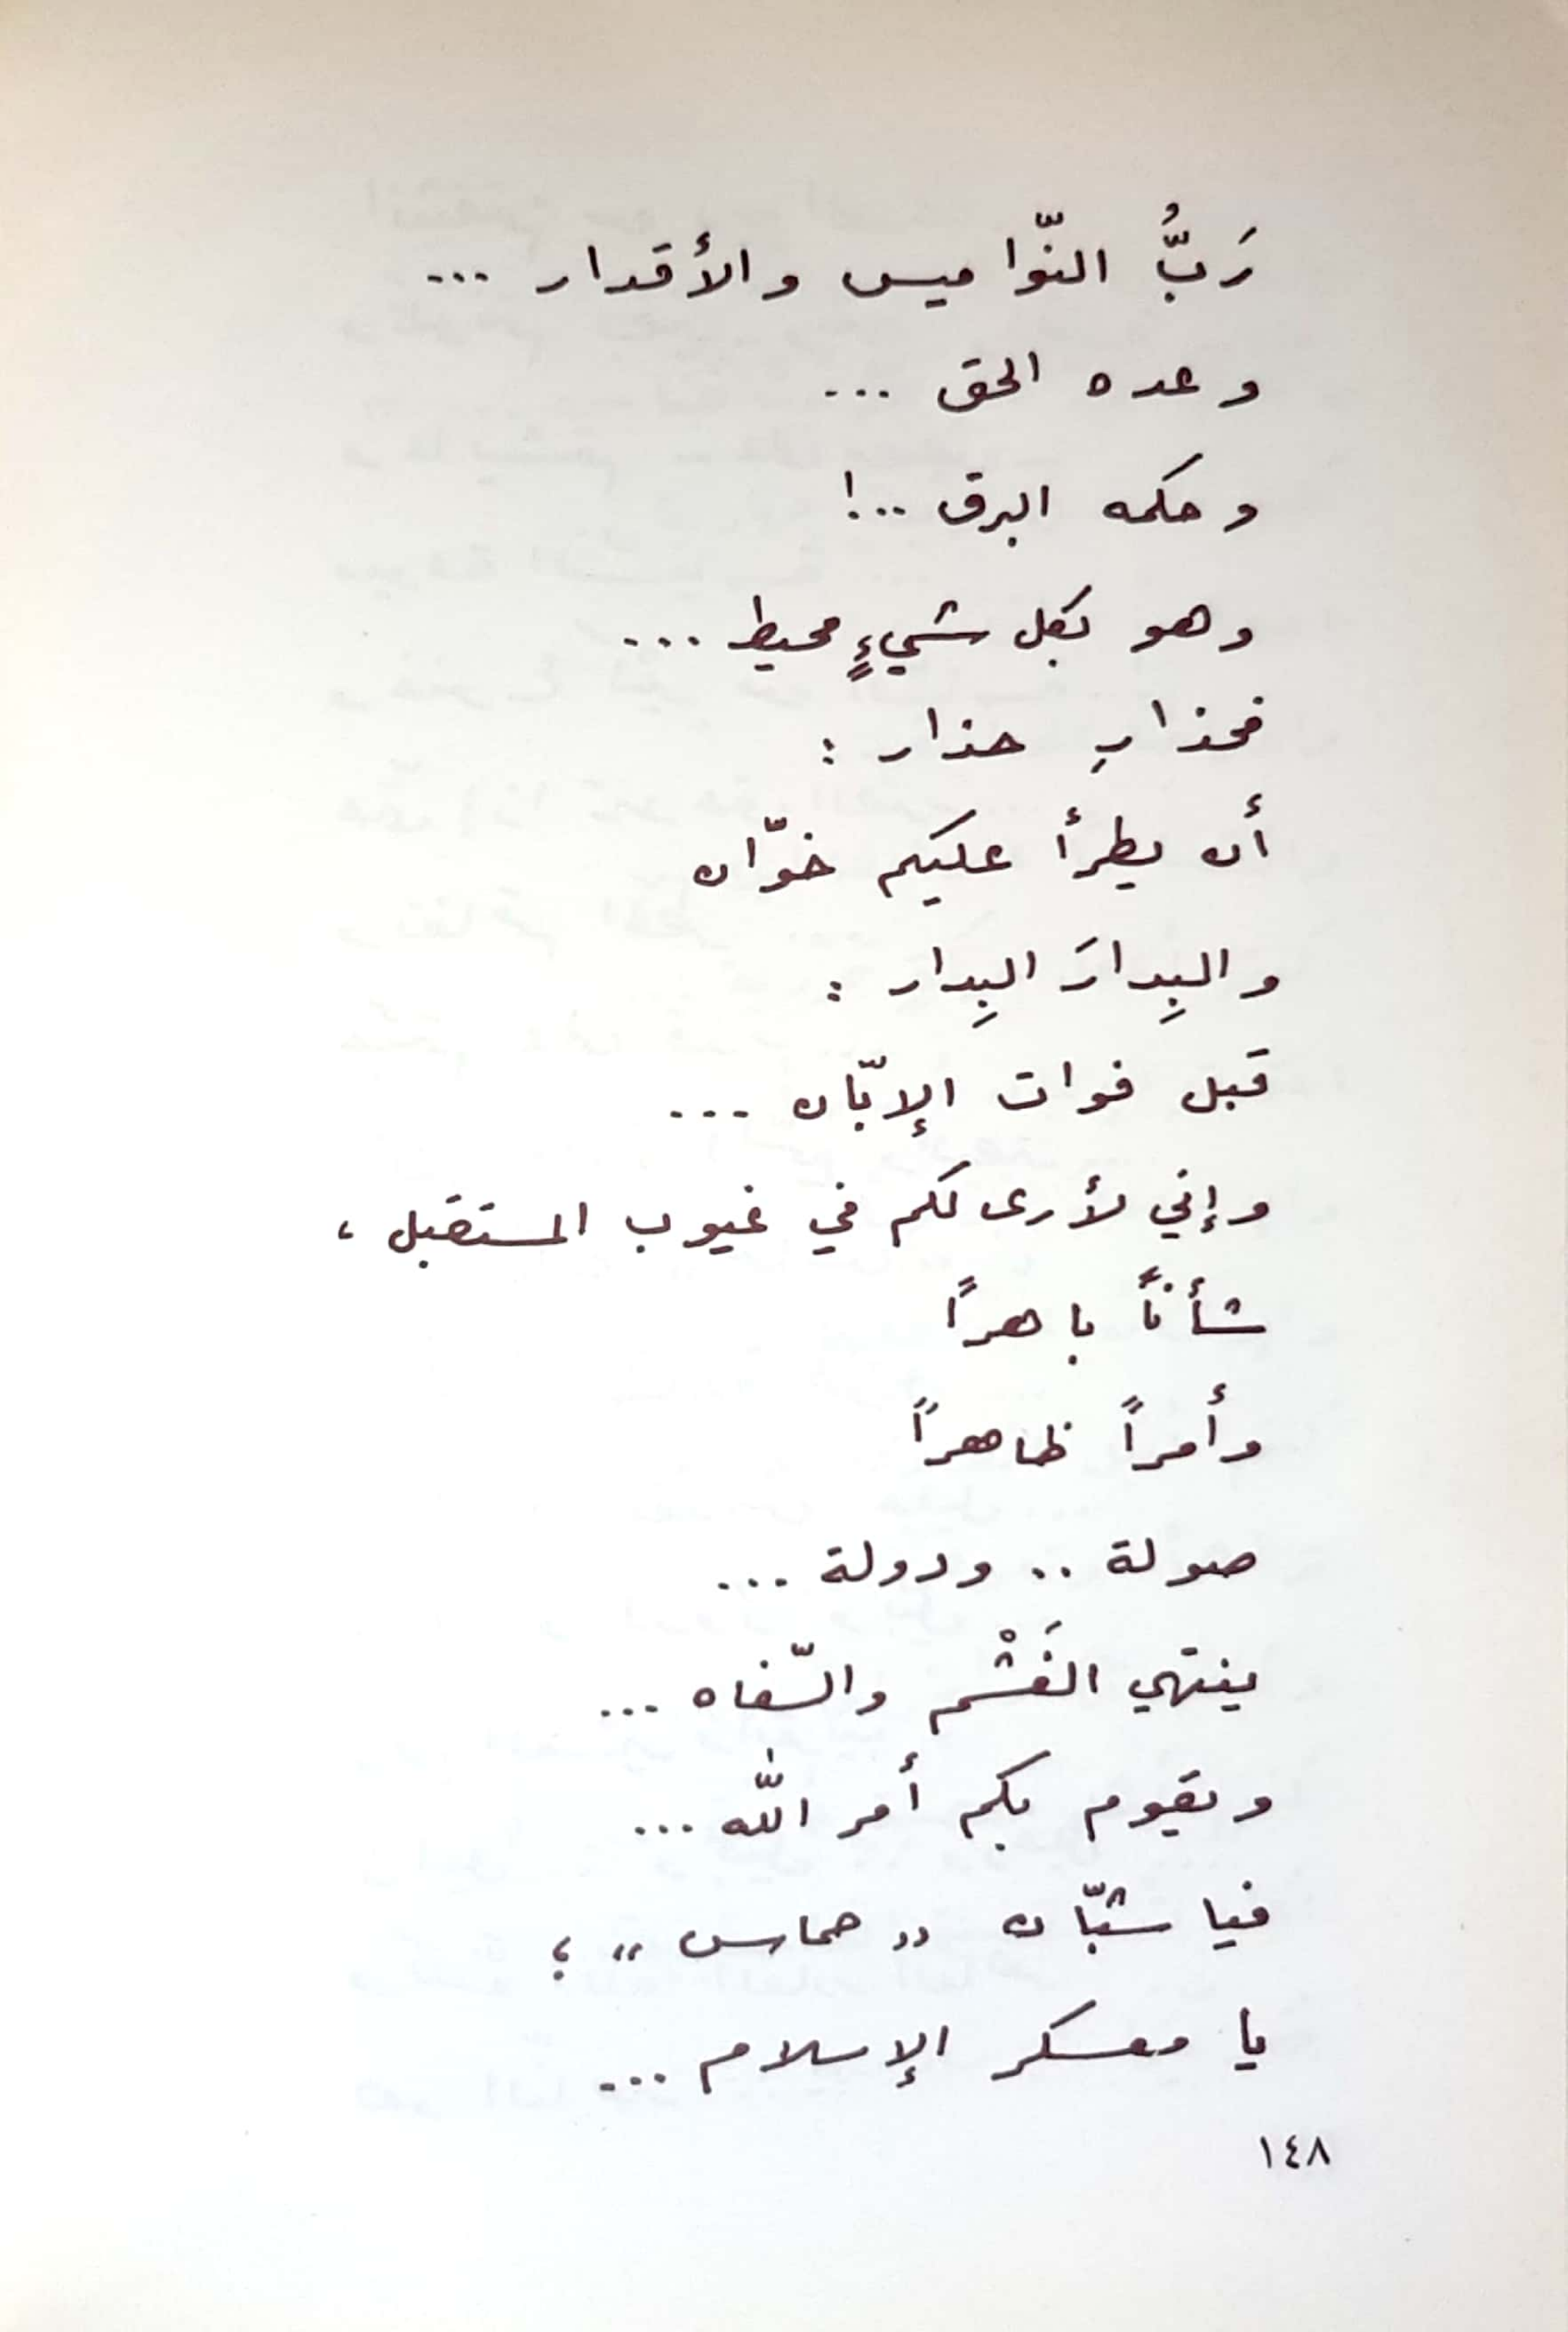 رَبُّ النّواميس والأقدار ...
وعده الحق ...
وحكمه البرق ..!
وهو بكل شيءٍ محيط ...
فحذارِ حذار :
أن يطرأ عليكم خوّان
والبِدارَ البِدار :
قبل فوات الإبّان ...
وإني لأرى لكم في غيوب المستقبل ،
شأناً باهراً
وأمراً ظاهراً
صولة .. ودولة ...
ينتهي الغَشْم والسّفاه ...
ويقوم بكم أمر اللّٰه ...
فيا شبّان „ حماس “ ؛
يا معسكر الإسلام ...
١٤٨